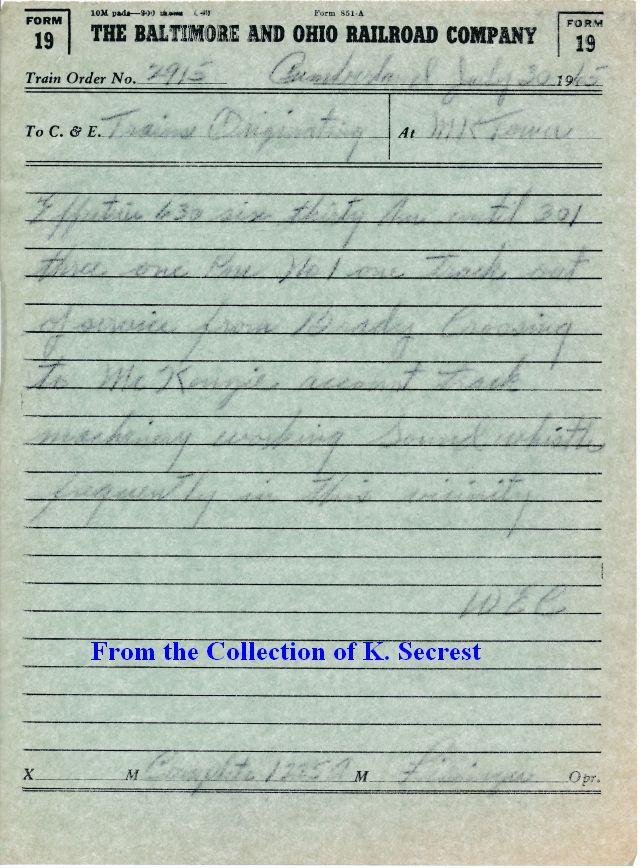 FORM 19
10M pads—200 Form 851-A
FORM 19
THE BALTIMORE AND OHIO RAILROAD COMPANY
Train Order No. 2915 Cumberland July 30 1965
To C. & E. Trains Originating At MK Tower
Effective 630 six thirty Am until 301
three one Pm No 1 one track out
of service from Brady Crossing
to McKenzie account track
machinery working Sound whistle
frequently in this vicinity
WEC
From the Collection of K. Secrest
X M Complete M Opr.